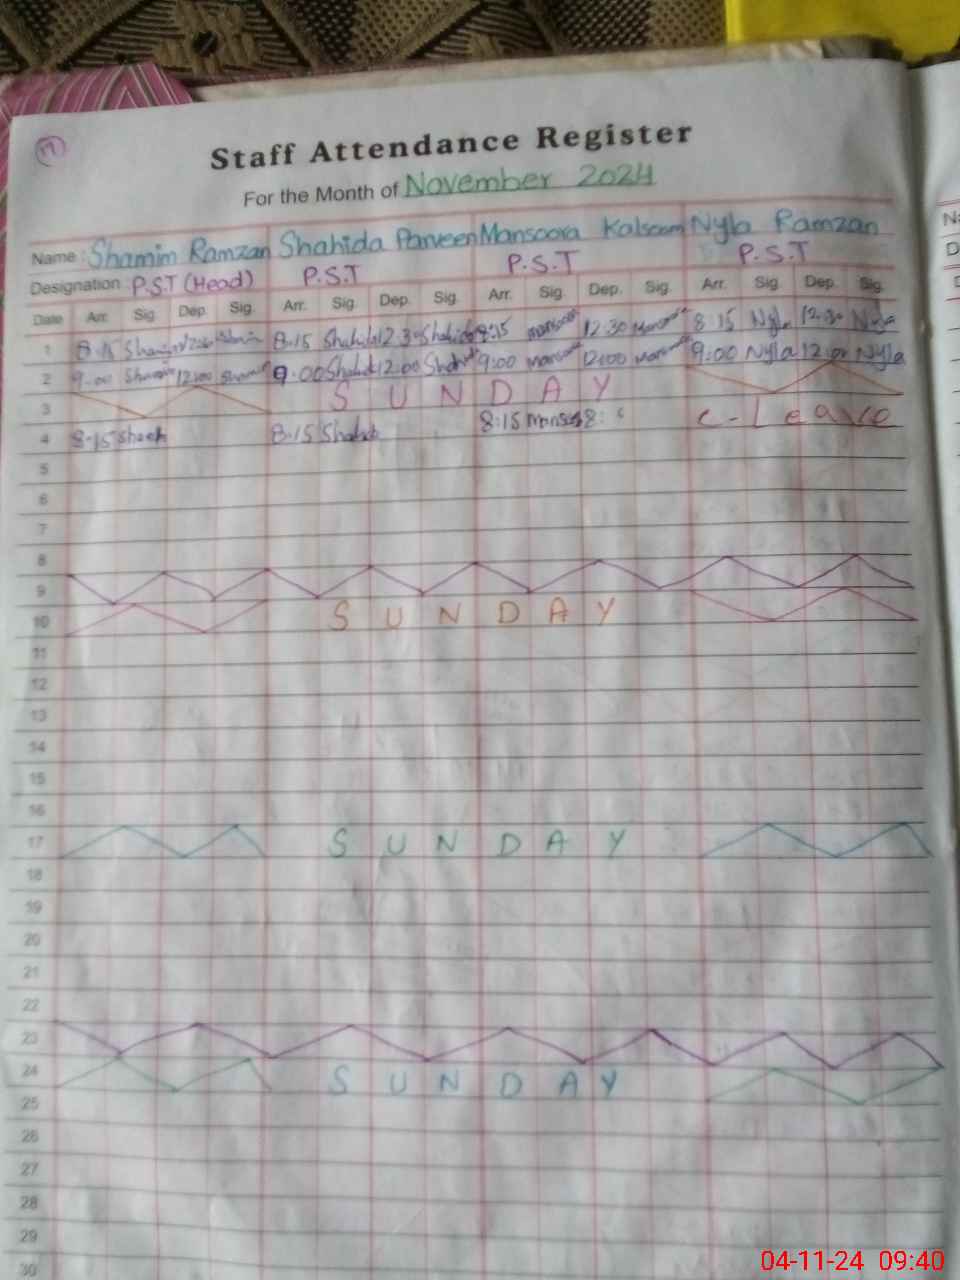 Staff Attendance Register
For the Month of November 2024
Name : Shamim Ramzan Shahida Parveen Mansoora Kalsoom Nyla Ramzan
Designation : P.S.T (Head) P.S.T P.S.T P.S.T
Date Arr. Sig. Dep. Sig. Arr. Sig. Dep. Sig. Arr. Sig. Dep. Sig. Arr. Sig. Dep. Sig.
1 8:15 8:15 12:30 8:15 12:30 8:15 Nyla 12:30 Nyla
2 9:00 12:00 9:00 12:00 9:00 12:00 9:00 Nyla 12:00 Nyla
3 SUNDAY
4 8:15 8:15 8:15 C-Leave
5
6
7
8
9
10 SUNDAY
11
12
13
14
15
16
17 SUNDAY
18
19
20
21
22
23
24 SUNDAY
25
26
27
28
29
30
04-11-24 09:40